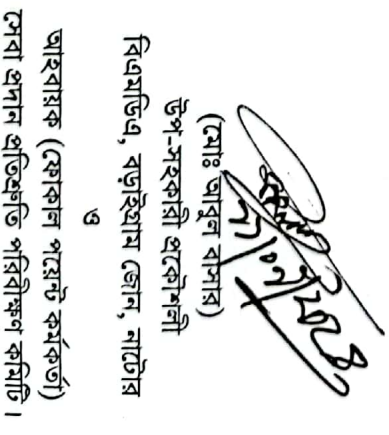 ২২/০১/২০২৪
(মোঃ আবুল বাসার)
উপ-সহকারী প্রকৌশলী
বিএমডিএ, বড়াইগ্রাম জোন, নাটোর
ও
আহবায়ক (ফোকাল পয়েন্ট কর্মকর্তা)
সেবা প্রদান প্রতিশ্রুতি পরিবীক্ষণ কমিটি।